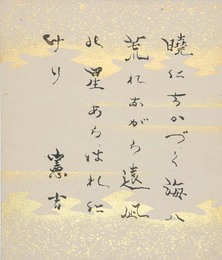 暁にちかづく海八
荒れながら遠凪
北星あらはれに
けり
憲吉